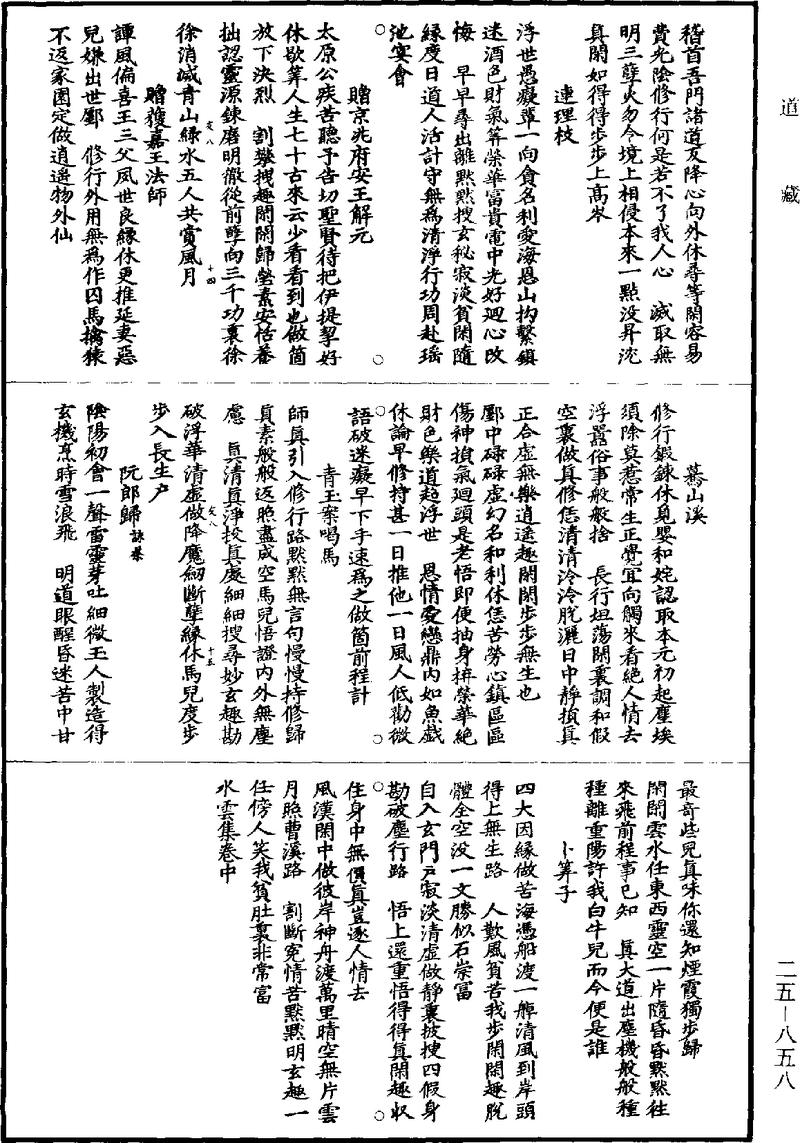 道藏
稽首吾門諸道友降心向外休尋等閑容易
費光陰修行何是若不了我人心　滅取無
明三孽火勿令境上相侵本來一點没昇沈
真閑如得得步步上高岑
連理枝
浮世愚癡輩一向貪名利愛海恩山拘繫鎮
迷酒色財氣筭榮華富貴電中光好迴心改
悔　早早尋出離默默搜玄秘寂淡貧閑隨
緣度日道人活計守無為清淨行功周赴瑶
池宴會
贈京兆府安王解元
太原公疾苦聽予告切聖賢待把伊提挈好
休歇筭人生七十古來云少看看到也做箇
放下決烈　割攀拽趣閑閑歸瑩素安恬養
拙認靈源鍊磨明徹從前孽向三千功裏徐
徐消滅青山綠水五人共賞風月
贈䕶嘉王法師
譚風偏喜王三父夙世良緣休更推延妻惡
兒嫌出世鄽　修行外用無為作囚馬擒猿
不返家園定做逍遥物外仙
驀山溪
修行鍛鍊休覓嬰和姹認取本元初起塵埃
須除莫惹常生正覺冝向觸來看絶人情去
浮囂俗事般般捨　長行坦蕩閑裏調和假
空裏做真修恁清清泠泠脫灑日中靜損真
正合虚無樂逍遥趣閑閑步步無生也
鄽中碌碌虚幻名和利休恁苦勞心鎮區區
傷神損氣迴頭是老悟即便抽身拚榮華絶
財色樂道超浮世　恩情愛戀鼎内如魚戲
休論早修持甚一日推他一日風人低勸微
語破迷癡早下手速為之做箇前程計
青玉案喝馬
師真引入修行路默默無言句慢慢持修歸
真素般般返照盡成空馬兒悟證内外無塵
慮　真清真淨投真處細細搜尋妙玄趣勘
破浮華清虚做降魔劒斷孽緣休馬兒度步
步入長生户
阮郎歸詠茶
陰陽初會一聲雷靈芽吐細微玉人製造得
玄機烹時雪浪飛　明道眼醒昏迷苦中甘
最奇些兒真味你還知煙霞獨步歸
閑閑雲水任東西靈空一片隨昏昏默默往
來飛前程事已知　真大道出塵機般般種
種離重陽許我白牛兒而今便是誰
卜筭子
四大因緣做苦海憑船渡一𦨴清風到岸頭
得上無生路　人歎風貧苦我步閑閑趣脫
體全空没一文勝似石崇富
自入玄門户寂淡清虚做靜裏披搜四假身
勘破塵行路　悟上還重悟得得真閑趣収
住身中無價真豈逐人情去
風漢閑中做彼岸神舟渡萬里晴空無片雲
月照曹溪路　割斷寃情苦默默明玄趣一
任傍人笑我貧肚裏非常富
水雲集卷中
二五—八五八